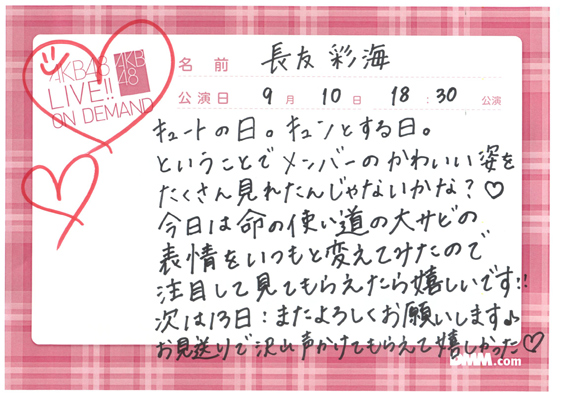 AKB48
LIVE!!
ON DEMAND
AKB
48
名前 長友彩海
公演日 9月10日 18:30公演
キュートの日。キュンとする日。
ということでメンバーのかわいい姿を
たくさん見れたんじゃないかな?♡
今日は命の使い道の大サビの
表情をいつもと変えてみたので
注目して見てもらえたら嬉しいです!!
次は13日:またよろしくお願いします♪
お見送りで沢山声かけてもらえて嬉しかった♡
DMM.com